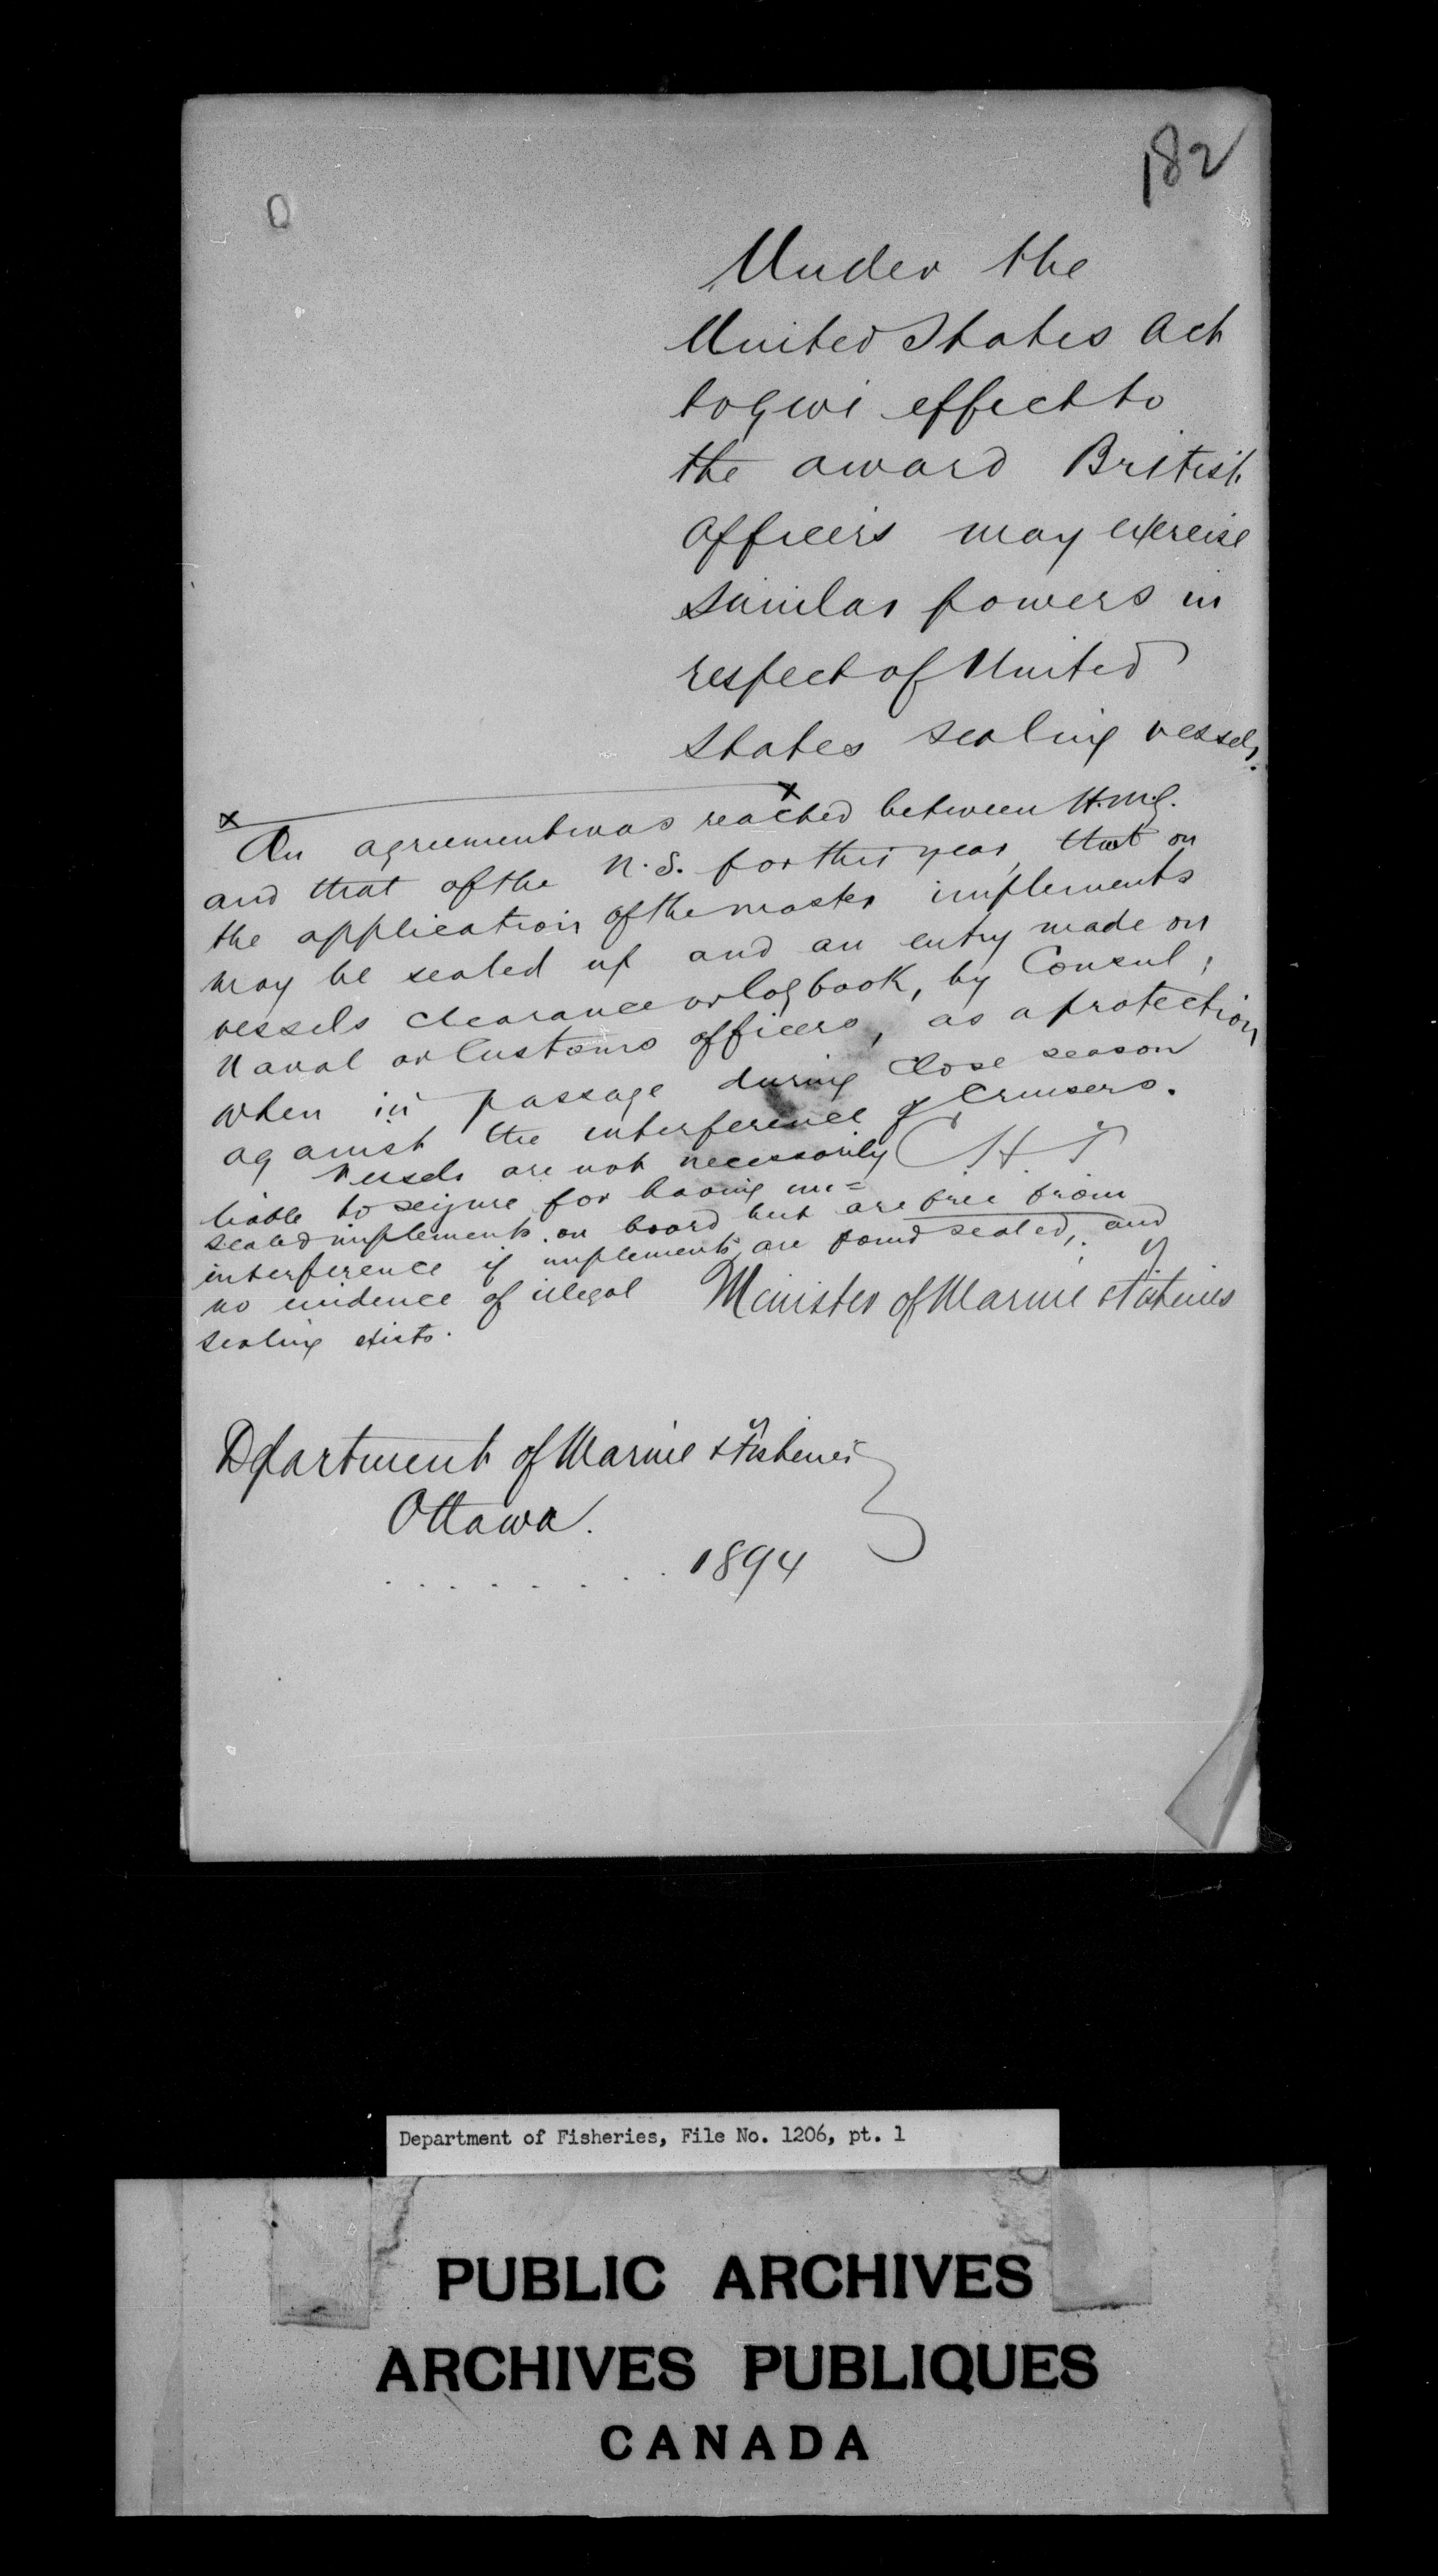 182
Under the
United States Act
to give effect to
the award British
Officers may exercise
similar powers in
respect of United
States sealing vessels.
x x
An agreement was reached between H.M.G.
and that of the U.S. for this year, that on
the application of the master implements
may be sealed up and an entry made on
vessels clearance or log book, by Consul,
Naval or Customs officers, as a protection
when in passage during close season
against the interference of Cruisers.
Vessels are not necessarily
liable to seizure for having un=
sealed implements on board but are free from
interference if implements are found sealed, and
no evidence of illegal
sealing exists.
C.H.T
Minister of Marine & Fisheries
Department of Marine & Fisheries
Ottawa.
. . . . . . . . . 1894
Department of Fisheries, File No. 1206, pt. 1
PUBLIC ARCHIVES
ARCHIVES PUBLIQUES
CANADA